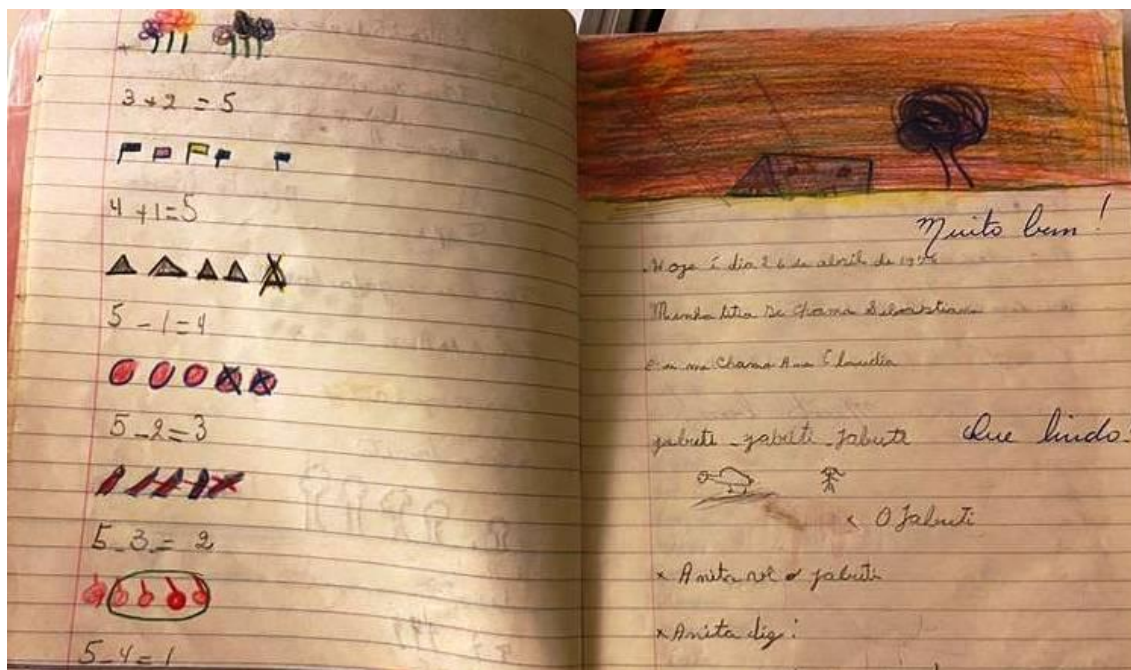 3 + 2 = 5
4 + 1 = 5
5 - 1 = 4
5 - 2 = 3
5 - 3 = 2
5 - 4 = 1
Muito bem!
Hoje é dia 26 de abril de
Minha titia se chama Sebastiana
Eu me chamo Ana Claudia
jabuti - jabuti - jabuti Que lindo!
x O Jabuti
x Anita vê o jabuti
x Anita diz: